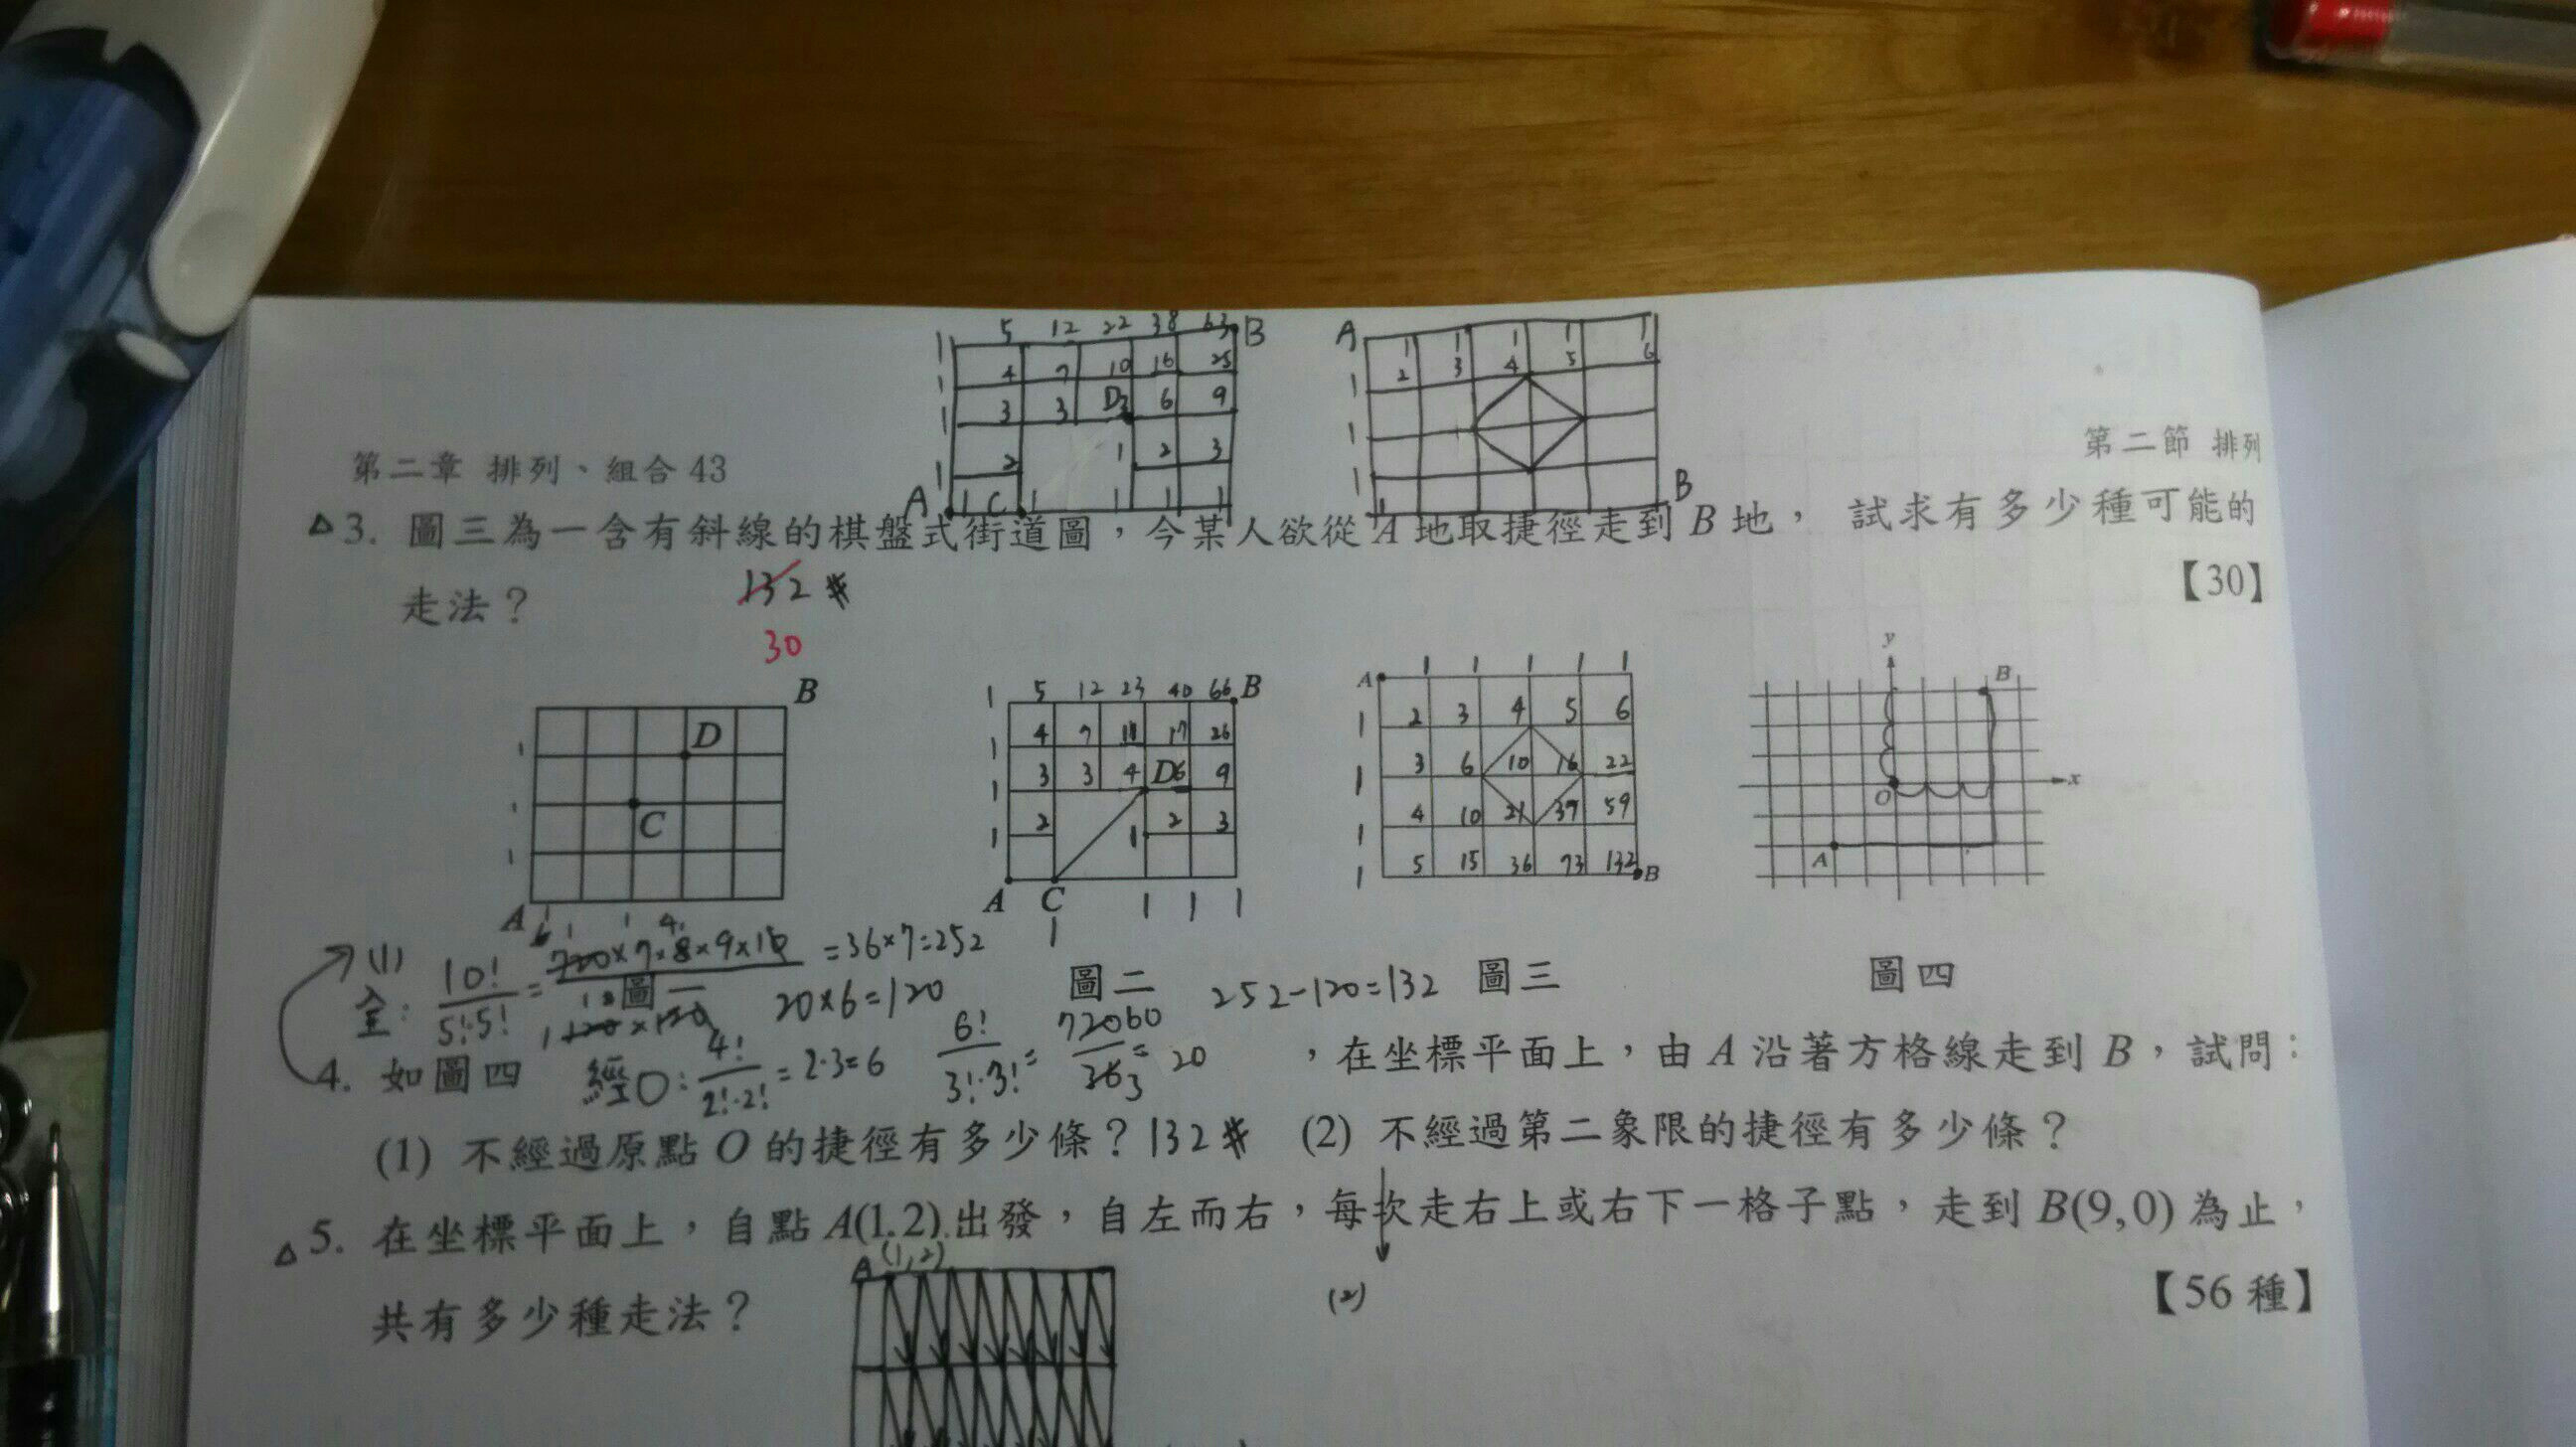 5 12 22 38 63 B
1 4 7 10 16 25
1 3 3 D3 6 9
1 2 1 2 3
A 1 C 1 1 1 1
A 1 1 1 1 1
2 3 4 5 6
1
1
1
1
B
第二章 排列、組合 43
第二節 排列
△3. 圖三為一含有斜線的棋盤式街道圖，今某人欲從 A 地取捷徑走到 B 地， 試求有多少種可能的
走法？ 132 # 【30】
30
B
D
C
A
1 5 12 23 40 66 B
1 4 7 11 17 26
1 3 3 4 D6 9
1 2 1 2 3
A C 1 1 1
1
A 1 1 1 1 1
1 2 3 4 5 6
1 3 6 10 16 22
1 4 10 21 37 59
1 5 15 36 73 132 B
y
B
O x
A
(1)
全: 10!/5!·5! = 720×7×8×9×10 = 36×7=252
20×6=120
圖一 圖二 252-120=132 圖三 圖四
4. 如圖四 經O: 4!/2!·2! = 2·3=6 6!/3!·3! = 20 ，在坐標平面上，由 A 沿著方格線走到 B，試問：
(1) 不經過原點 O 的捷徑有多少條？132 # (2) 不經過第二象限的捷徑有多少條？
△5. 在坐標平面上，自點 A(1,2) 出發，自左而右，每次走右上或右下一格子點，走到 B(9,0) 為止，
共有多少種走法？ 【56 種】
A (1,2)
(2)